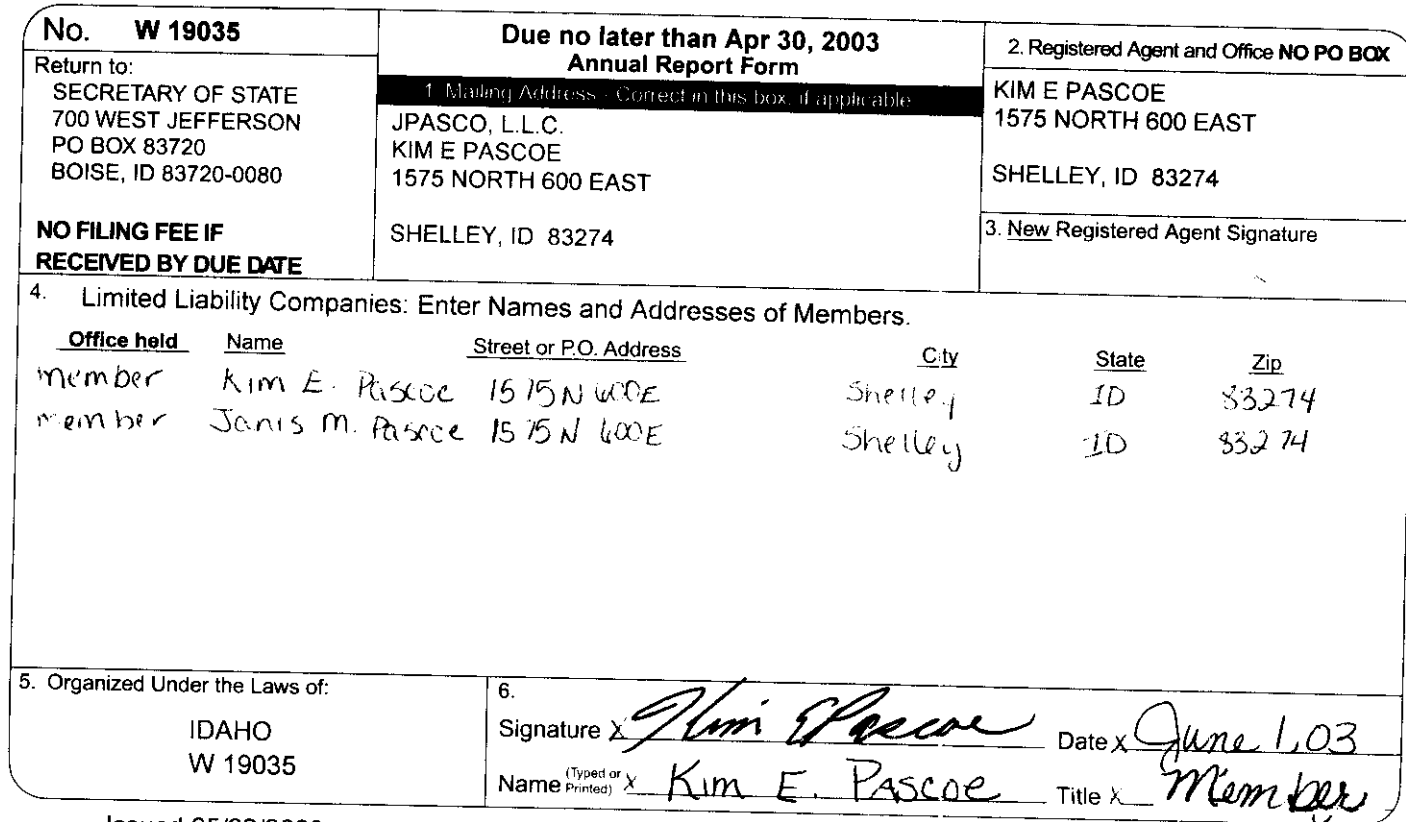 No. W 19035
Return to:
SECRETARY OF STATE
700 WEST JEFFERSON
PO BOX 83720
BOISE, ID 83720-0080
NO FILING FEE IF
RECEIVED BY DUE DATE
Due no later than Apr 30, 2003
Annual Report Form
1. Mailing Address - Correct in this box, if applicable
JPASCO, L.L.C.
KIM E PASCOE
1575 NORTH 600 EAST
SHELLEY, ID 83274
2. Registered Agent and Office NO PO BOX
KIM E PASCOE
1575 NORTH 600 EAST
SHELLEY, ID 83274
3. New Registered Agent Signature
4. Limited Liability Companies: Enter Names and Addresses of Members.
Office held Name Street or P.O. Address City State Zip
member Kim E. Pascoe 1575 N 600E Shelley ID 83274
member Janis M. Pascoe 1575 N 600E Shelley ID 83274
5. Organized Under the Laws of:
IDAHO
W 19035
6.
Signature X Kim E Pascoe Date X June 1, 03
Name (Typed or Printed) X Kim E. PASCOE Title X Member